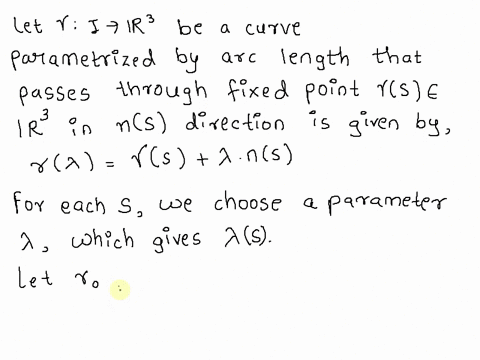 Let r: I → IR³ be a curve
parametrized by arc length that
passes through fixed point r(s) ∈
IR³ in n(s) direction is given by,
r(λ) = r(s) + λ·n(s)
For each s, we choose a parameter
λ, which gives λ(s).
Let r₀